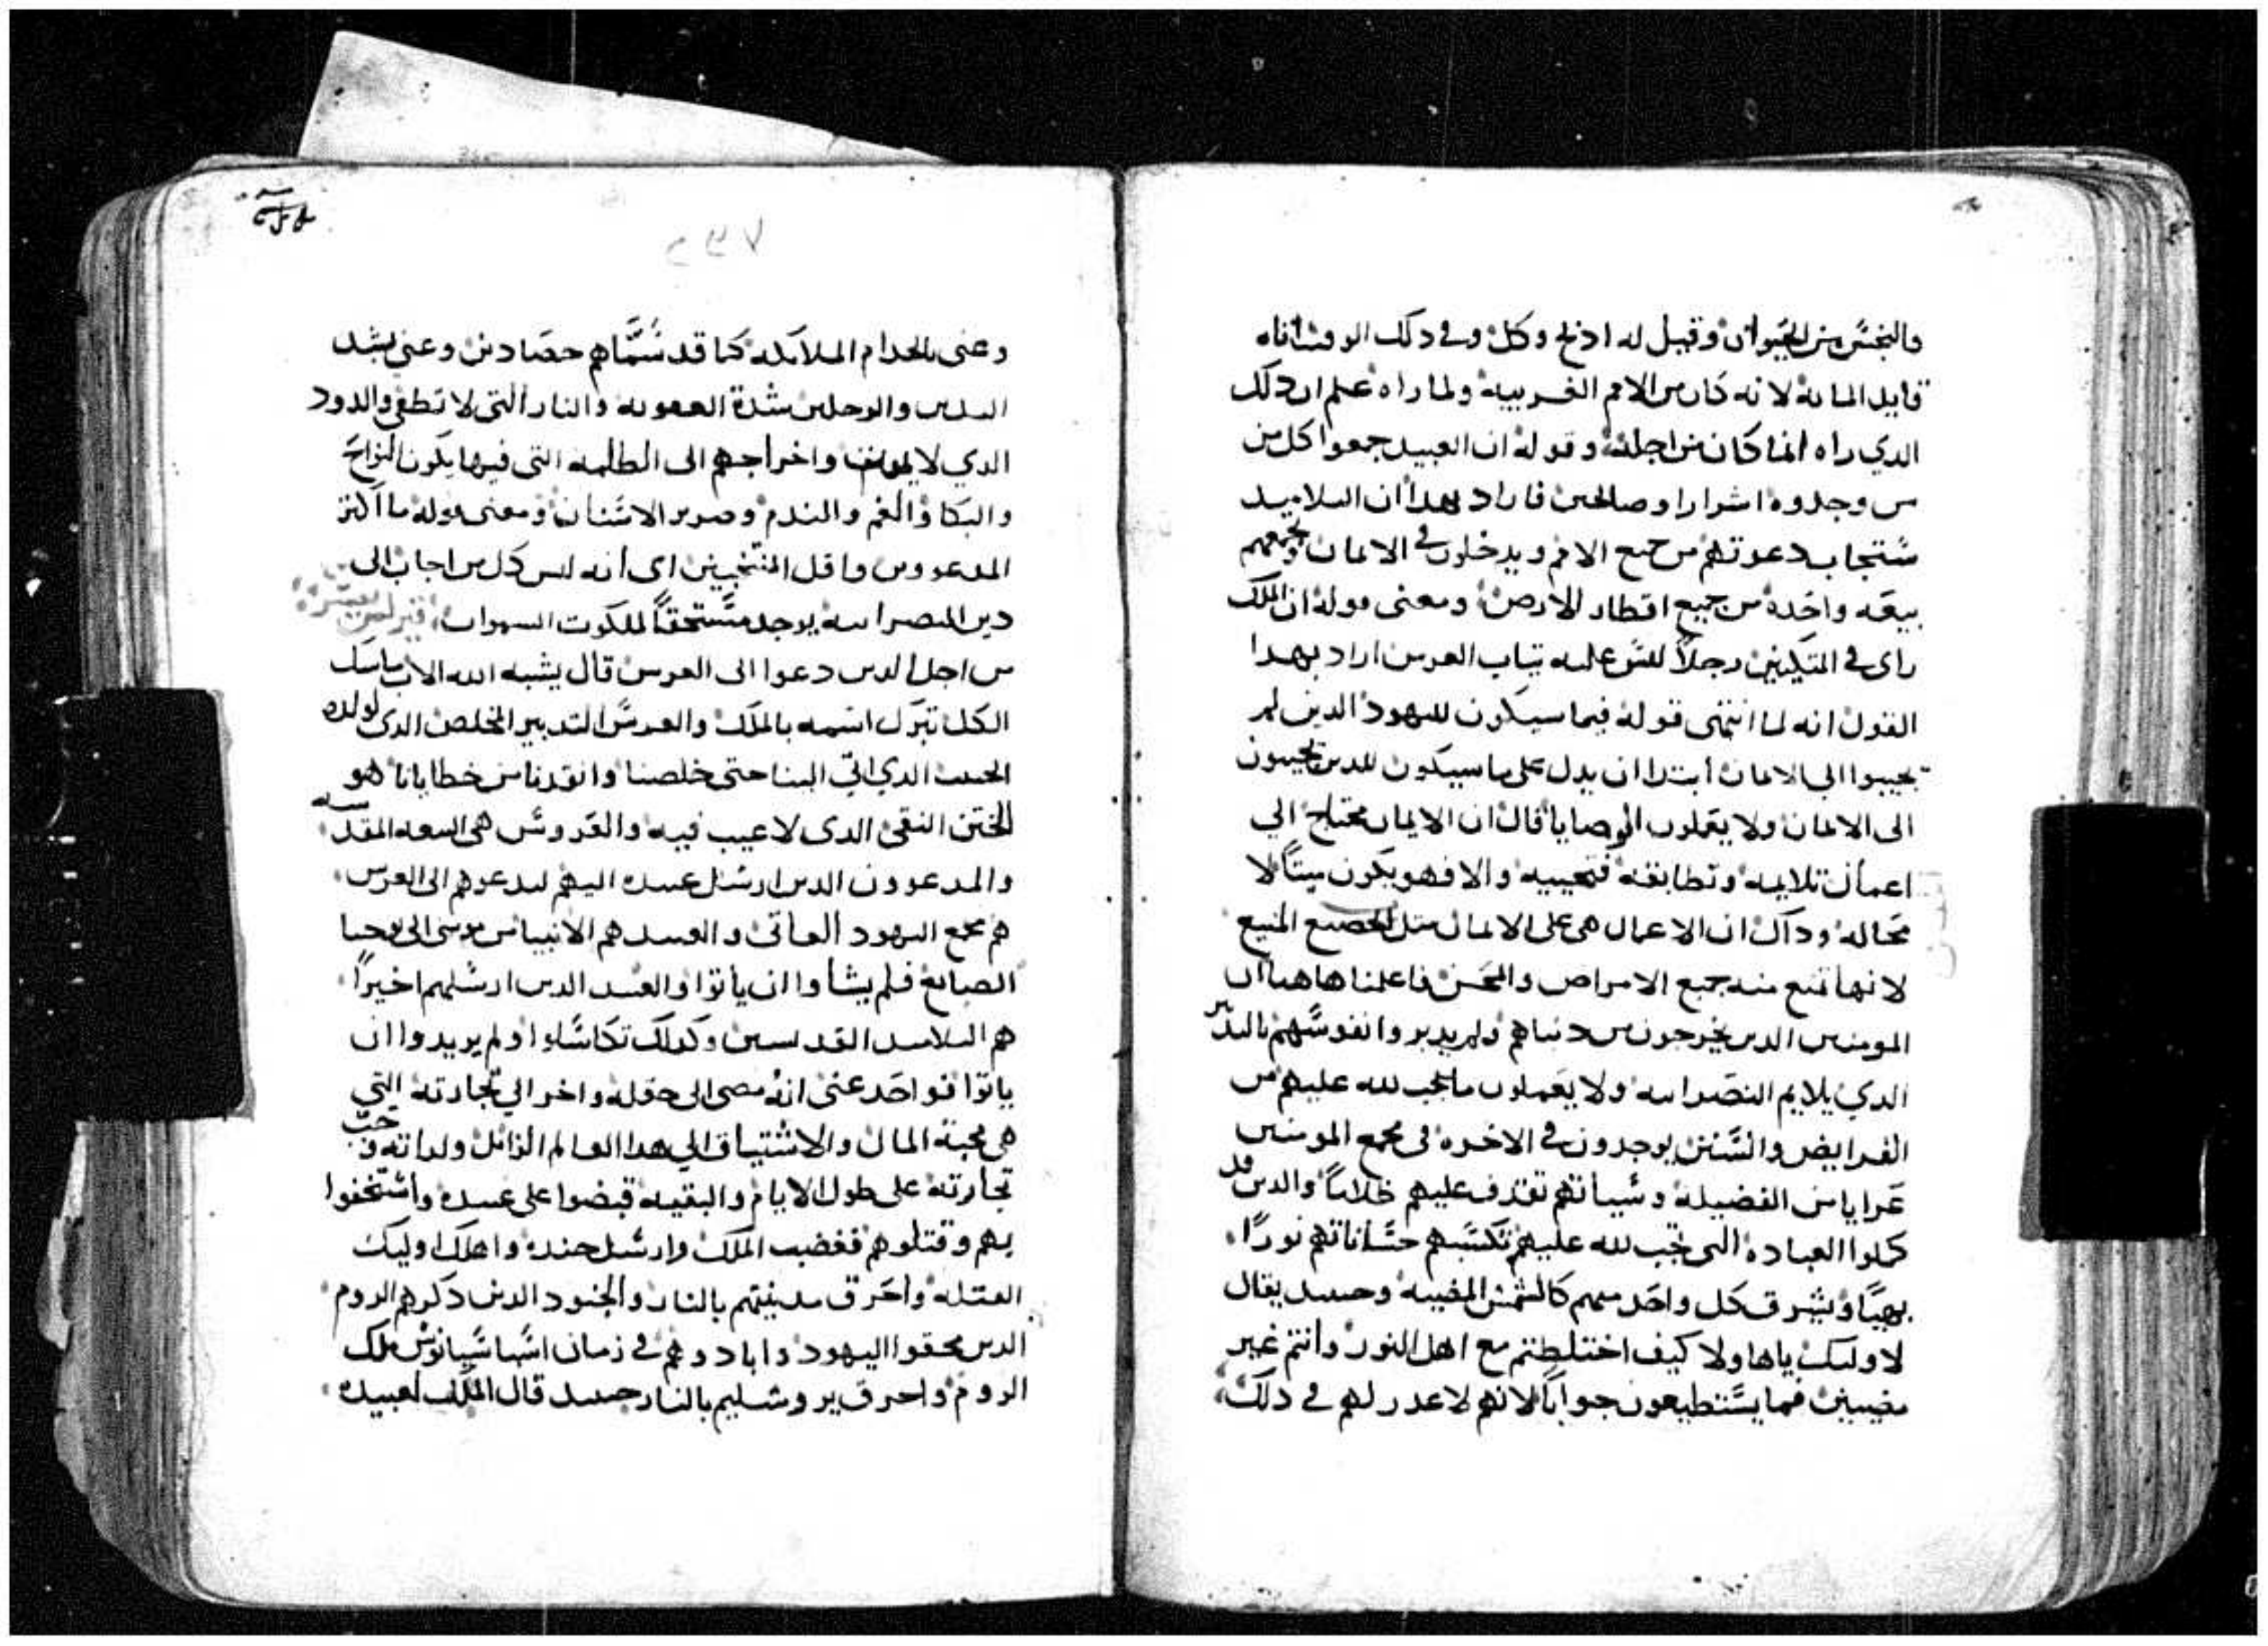 والنجس من الحيوان وقيل له ادبح وكل وفي دلك الوقت اتاه
قايد المايه لانه كان من الامم الغريبه ولما راه علم ان دلك
الدي راه انما كان من اجله وقوله ان العبيد جمعوا كل من
من وجدوه اشرارا وصالحين فاراد بهدا ان التلاميد
ستجاب دعوتهم من جميع الامم ويدخلون في الايمان وتجمعهم
بيعه واحده من جميع اقطار الارض ومعنى قوله ان الملك
راى في المتكيين رجلاً ليس عليه تياب العرس اراد بهدا
القول انه لما انتهى قوله فيما سيكون لليهود الدين لم
يجيبوا الي الايمان ابتدا ان يدل على ما سيكون للدين يجيبون
الى الايمان ولا يعملون الوصايا قال ان الايمان محتاج الي
اعمال تلايمه وتطابقه فتحييه والا فهو يكون ميتاً لا
محاله وداك ان الاعمال هي على الايمان متل الحصن المنيع
لانها تمنع منه جميع الامراض والمحن فاعلمنا هاهنا ان
المومنين الدين يخرجون من دنياهم ولم يدبروا نفوسهم بالتدبير
الدي يلايم النصرانيه ولا يعملون ما يجب لله عليهم من
الفرايض والسنن يوجدون في الاخره في مجمع المومنين
عرايا من الفضيله وسياتهم تقدف عليهم ظلاماً والدين قد
كملوا العباده التى تجب لله عليهم تكسبهم حسناتهم نوراً
بهياً ويشرق كل واحد منهم كالشمس المضيه وحينيد يقال
لاوليك ياهاولا كيف اختلطتم مع اهل النور وانتم غير
مضيين فما يستطيعون جواباً لانهم لا عدر لهم في دلك
٢٥٧
وعنى بالخدام الملايكه كما قد سماهم حصادين وعنى بشد
اليدين والرجلين شدة العقوبه والنار التى لا تطفى والدود
الدي لا يموت واخراجهم الى الظلمه التى فيها يكون النواح
والبكا والغم والندم وصرير الاسنان ومعنى قوله ما اكتر
المدعووين واقل المنتخبين اى انه ليس كل من اجاب الى
دين النصرانيه يوجد مستحقاً لملكوت السموات
من اجل الدين دعوا الى العرس قال يشبه الله الاب ماسك
الكل تبرك اسمه بالملك والعرس التدبير المخلص الدى لولده
الحبيب الدي اتي الينا حتى خلصنا وانقدنا من خطايانا هو
الختن النقى الدى لا عيب فيه والعروس هى البيعه المقدسه
والمدعوون الدين ارسل عبيده اليهم ليدعوهم الى العرس
هم مجمع اليهود العاتى والعبيد هم الانبيا من موسى الى يوحنا
الصابغ فلم يشاوا ان ياتوا والعبيد الدين ارسلهم اخيراً
هم التلاميد القديسين وكدلك تكاسلوا ولم يريدوا ان
ياتوا فواحد عنى انه مضى الى حقله واخر الي تجارته التي
هي محبة المال والاشتياق الي هدا العالم الزايل ولداته وحب
تجارته على طول الايام والبقيه قبضوا على عبيده واستخفوا
بهم وقتلوهم فغضب الملك وارسل جنده واهلك اوليك
القتله واحرق مدينتهم بالنار والجنود الدين دكرهم الروم
الدين محقوا اليهود وابادوهم في زمان اسباسيانوس ملك
الروم واحرق يروشليم بالنار حينيد قال الملك لعبيده